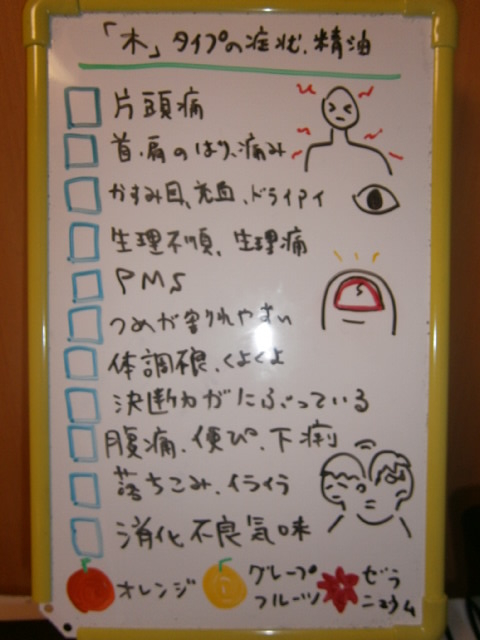 「木」タイプの症状、精油
片頭痛
首、肩のはり、痛み
かすみ目、充血、ドライアイ
生理不順、生理痛
PMS
つめが割れやすい
体調不良、くよくよ
決断力がにぶっている
腹痛、便ぴ、下痢
落ちこみ、イライラ
消化不良気味
オレンジ
グレープ
フルーツ
ゼラ
ニュウム